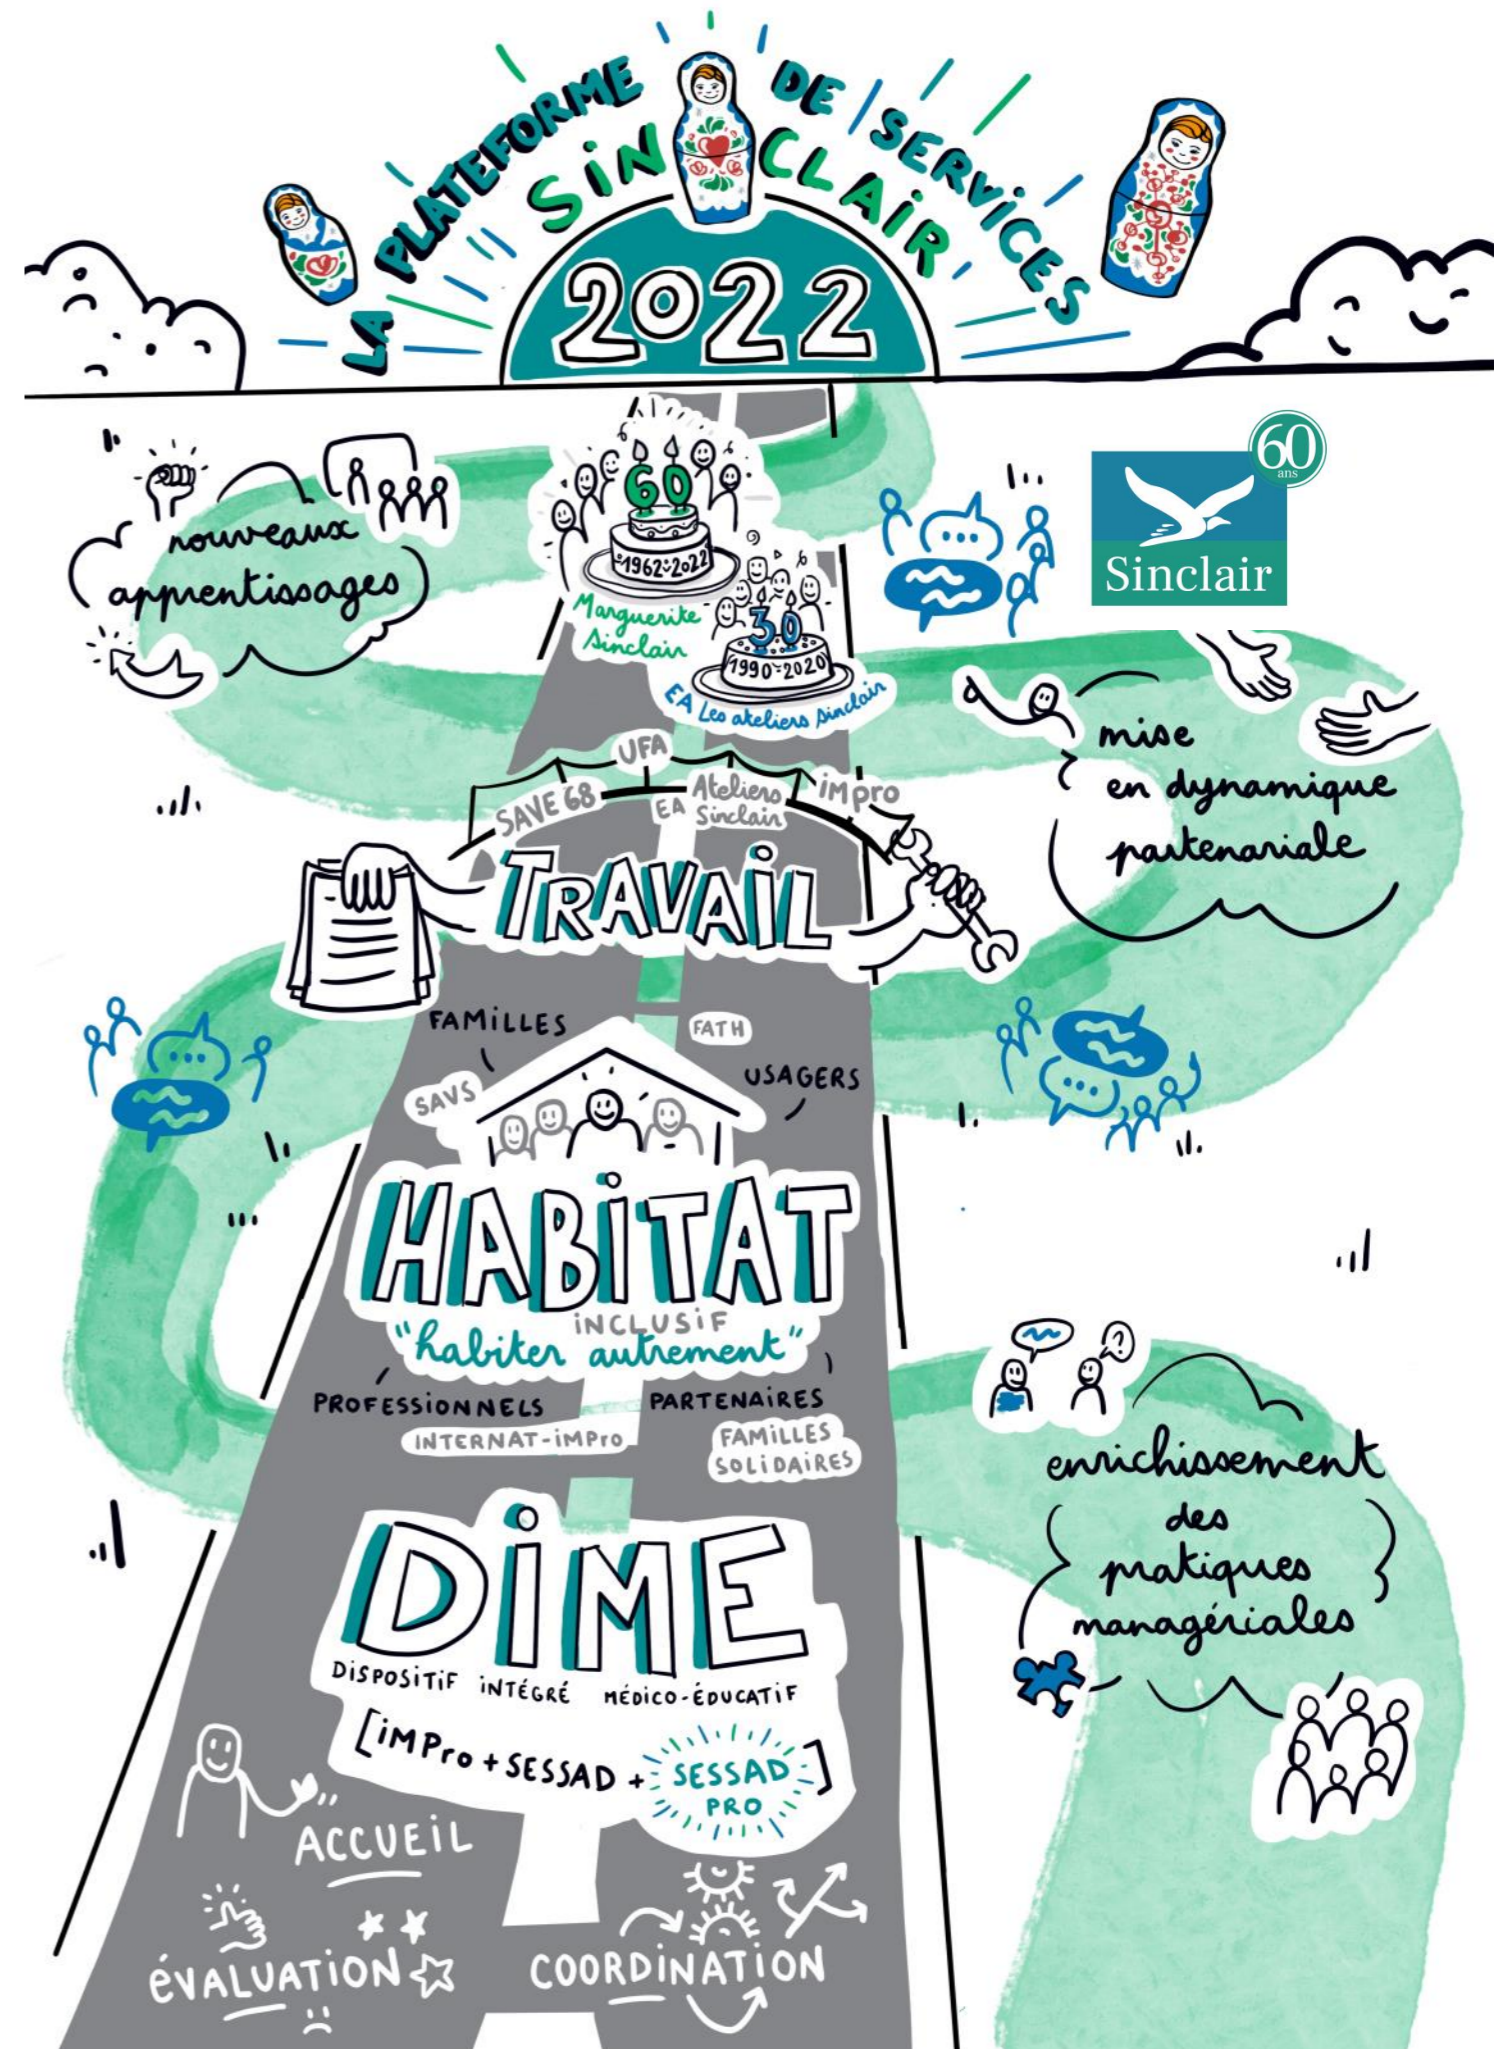 LA PLATEFORME DE SERVICES
SiN CLAiR
2022
60
1962-2022
Marguerite
Sinclair
30
1990-2020
EA Les ateliers Sinclair
60
ans
Sinclair
nouveaux
apprentissages
mise
en dynamique
partenariale
UFA
SAVE 68
EA Ateliers
Sinclair
iMPro
TRAVAiL
FAMiLLES
FATH
SAVS
USAGERS
HABiTAT
iNCLUSiF
"habiter autrement"
PROFESSiONNELS
PARTENAiRES
iNTERNAT-iMPro
FAMiLLES
SOLiDAiRES
enrichissement
des
pratiques
managériales
DiME
DiSPOSiTiF iNTÉGRÉ MÉDiCO-ÉDUCATiF
[iMPro + SESSAD + SESSAD
PRO]
ACCUEiL
éVALUATiON
COORDiNATiON